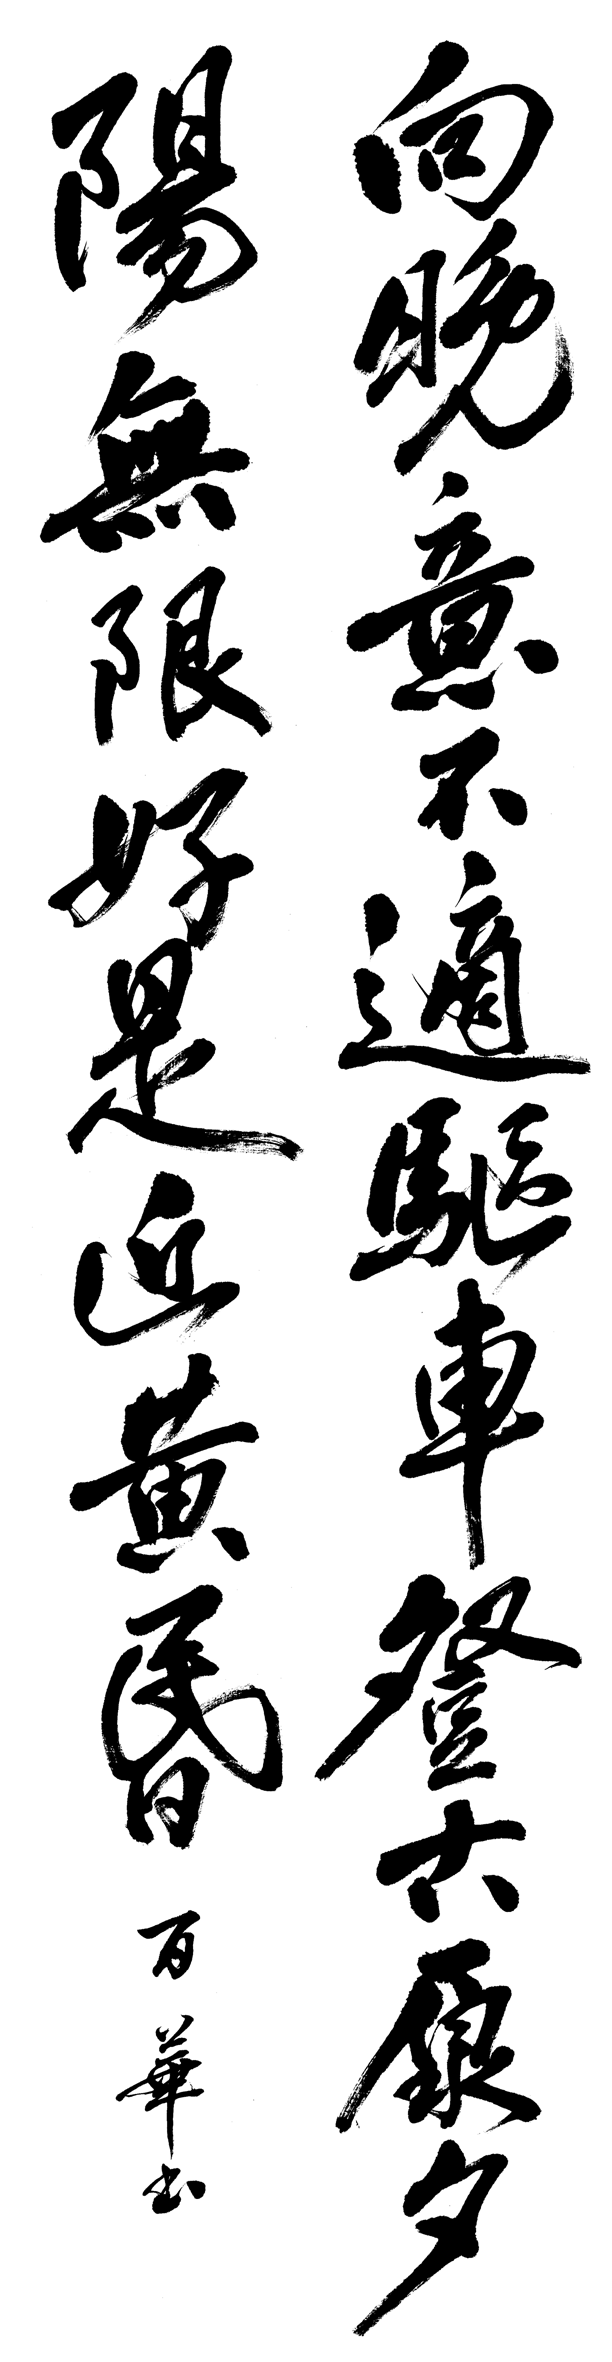 向晚意不適驅車登古原夕
陽無限好是近黃昏
百華書